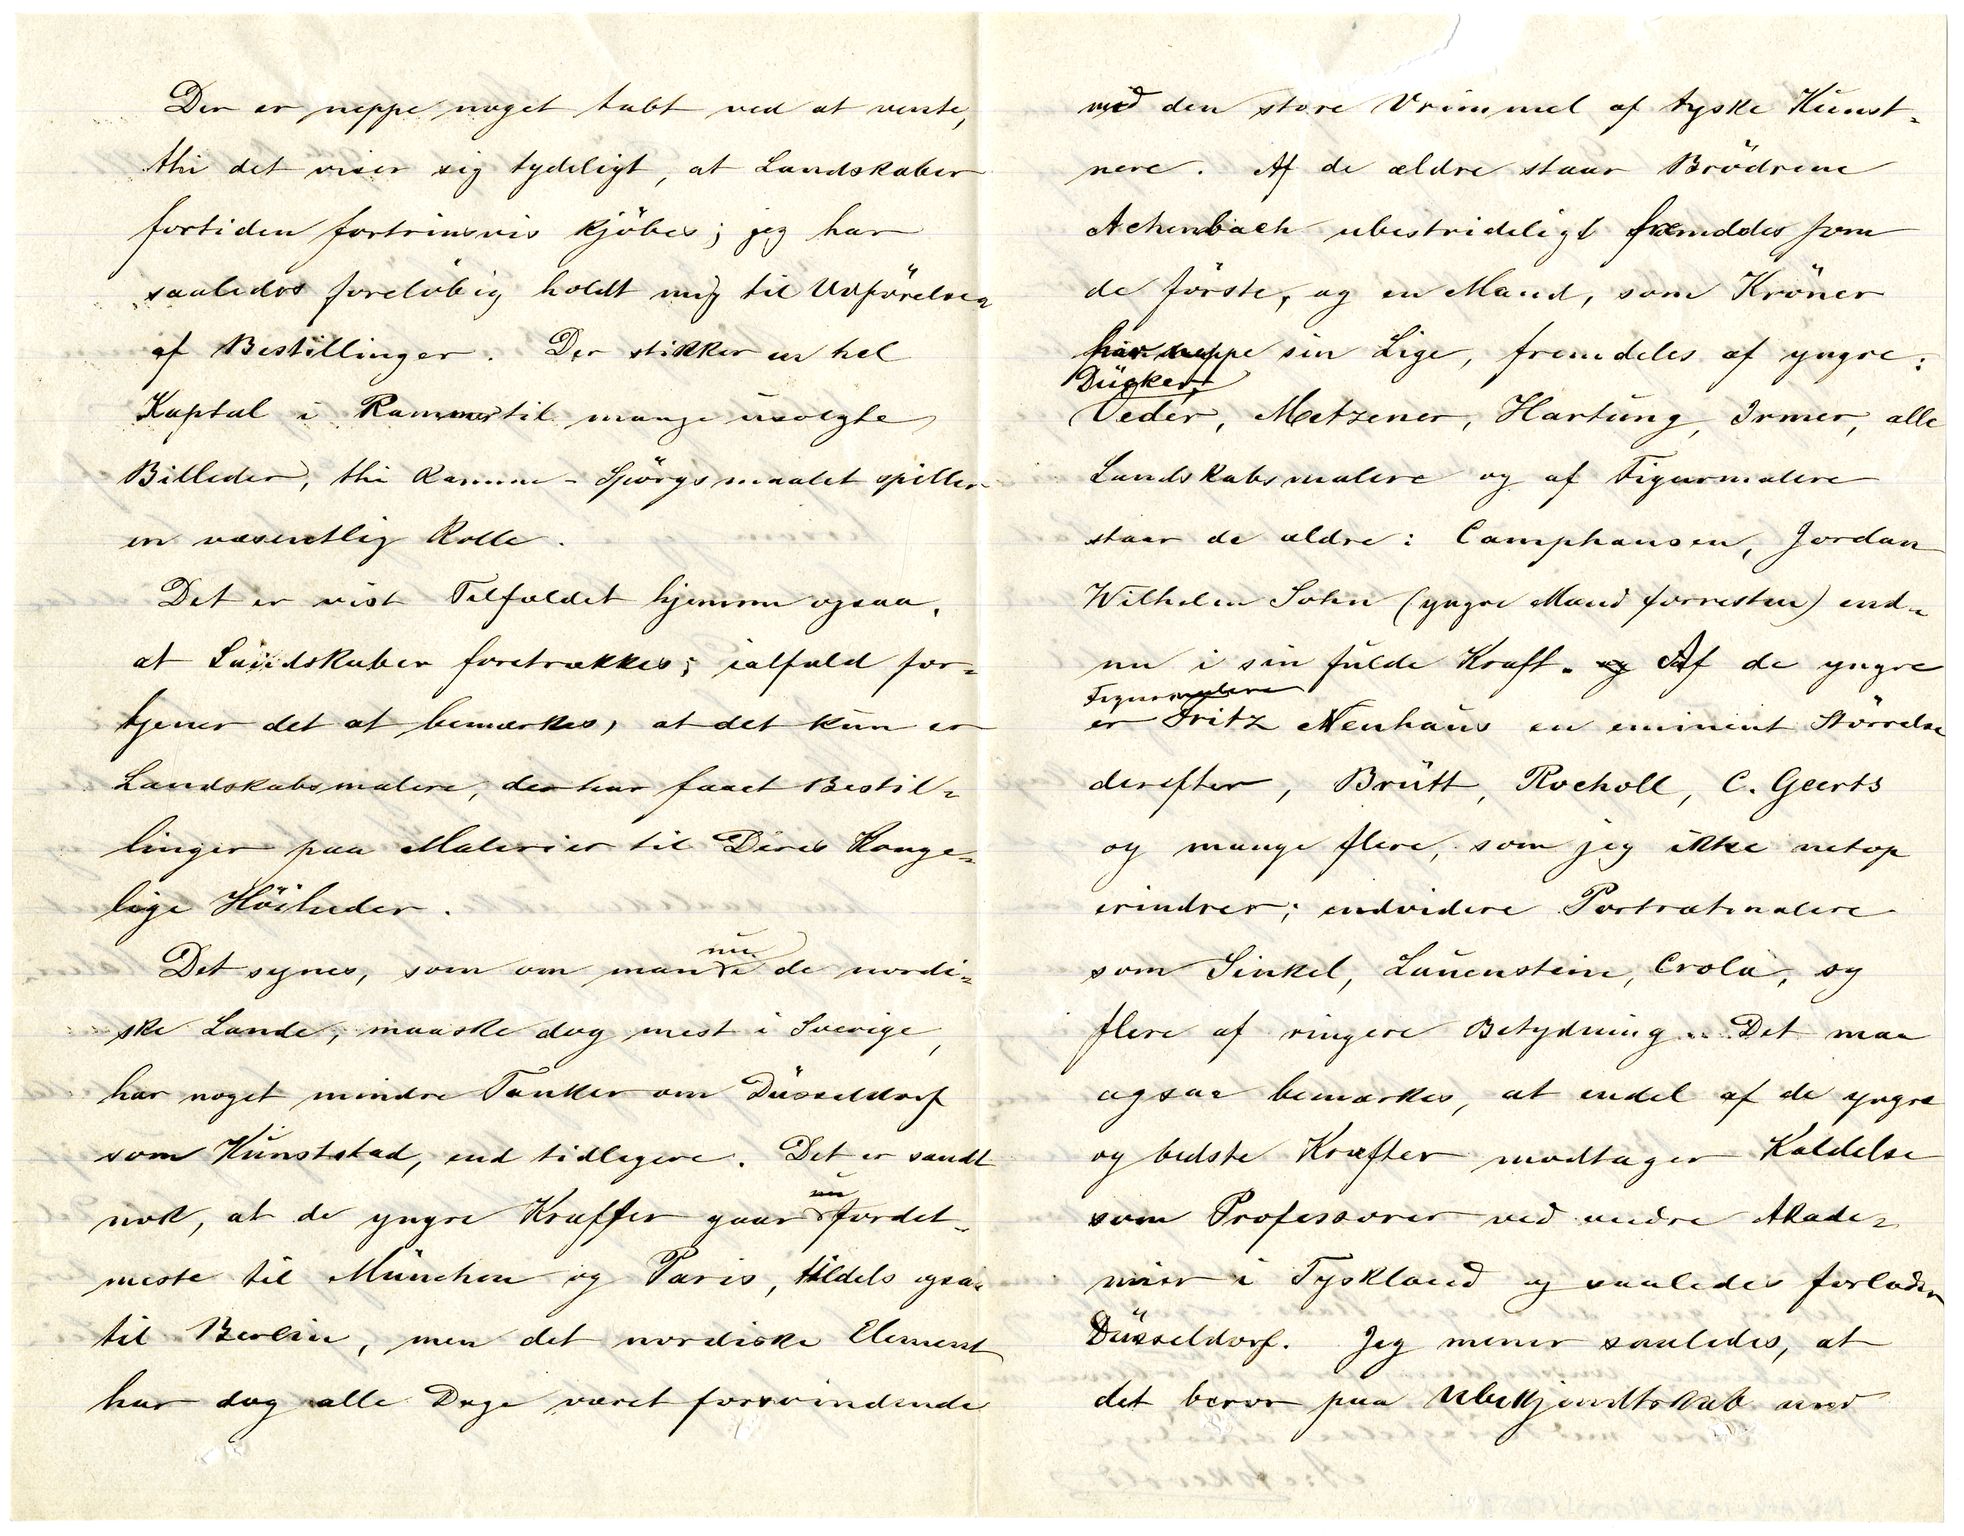 Der er neppe noget tabt ved at vente,
thi det viser sig tydeligt, at Landskaber
fortiden fortrinsvis kjöbes; jeg har
saaledes foreløbig holdt mig til Udförelsen
af Bestillinger. Der stikker en hel
Kaptal i Rammer til mange usolgte
Billeder, thi Ramme-Spörgsmaalet spiller
en væsentlig Rolle.
Det er vist Tilfældet hjemme ogsaa,
at Landskaber foretrækkes; ialfald for-
tjener det at bemærkes, at det kun er
Landskabsmalere, der har faaet Bestil-
linger paa Malerier til Deres Konge-
lige Höiheder.
Det synes, som om man nu i de nordi-
ske Lande, maaske dog mest i Sverige,
har noget mindre Tanker om Düsseldorf
som Kunststad, end tidligere. Det er sandt
nok, at de yngre Kræfter gaar nu for det-
meste til München og Paris, tildels ogsaa
til Berlin, men det nordiske Element
har dog alle Dage været forsvindende
mod den store Vrimmel af tyske Kunst-
nere. Af de ældre staar Brödrene
Achenbach ubestrideligt fremdeles som
de förste, og en Mand, som Kröner
har neppe sin Lige, fremdeles af yngre:
Dücker,
Oeder, Metzener, Hartung, Irmer, alle
Landskabsmalere og af Figurmalere
staar de ældre: Camphausen, Jordan
Wilhelm Sohn (yngre Mand forresten) end-
nu i sin fulde Kraft. og Af de yngre
Figurmalere
er Fritz Neuhaus en eminent Störrelse
derefter, Brütt, Rocholl, C. Geerts
og mange flere, som jeg ikke netop
erindrer; endvidere Portrætmalere
som Sinkel, Lauenstein, Crola, og
flere af ringere Betydning. Det maa
ogsaa bemærkes, at endel af de yngre
og bedste Kræfter modtager Kaldelse
som Professorer ved andre Akade-
mier i Tyskland og saaledes forlader
Düsseldorf. Jeg mener saaledes, at
det beror paa Ubekjendtskab med